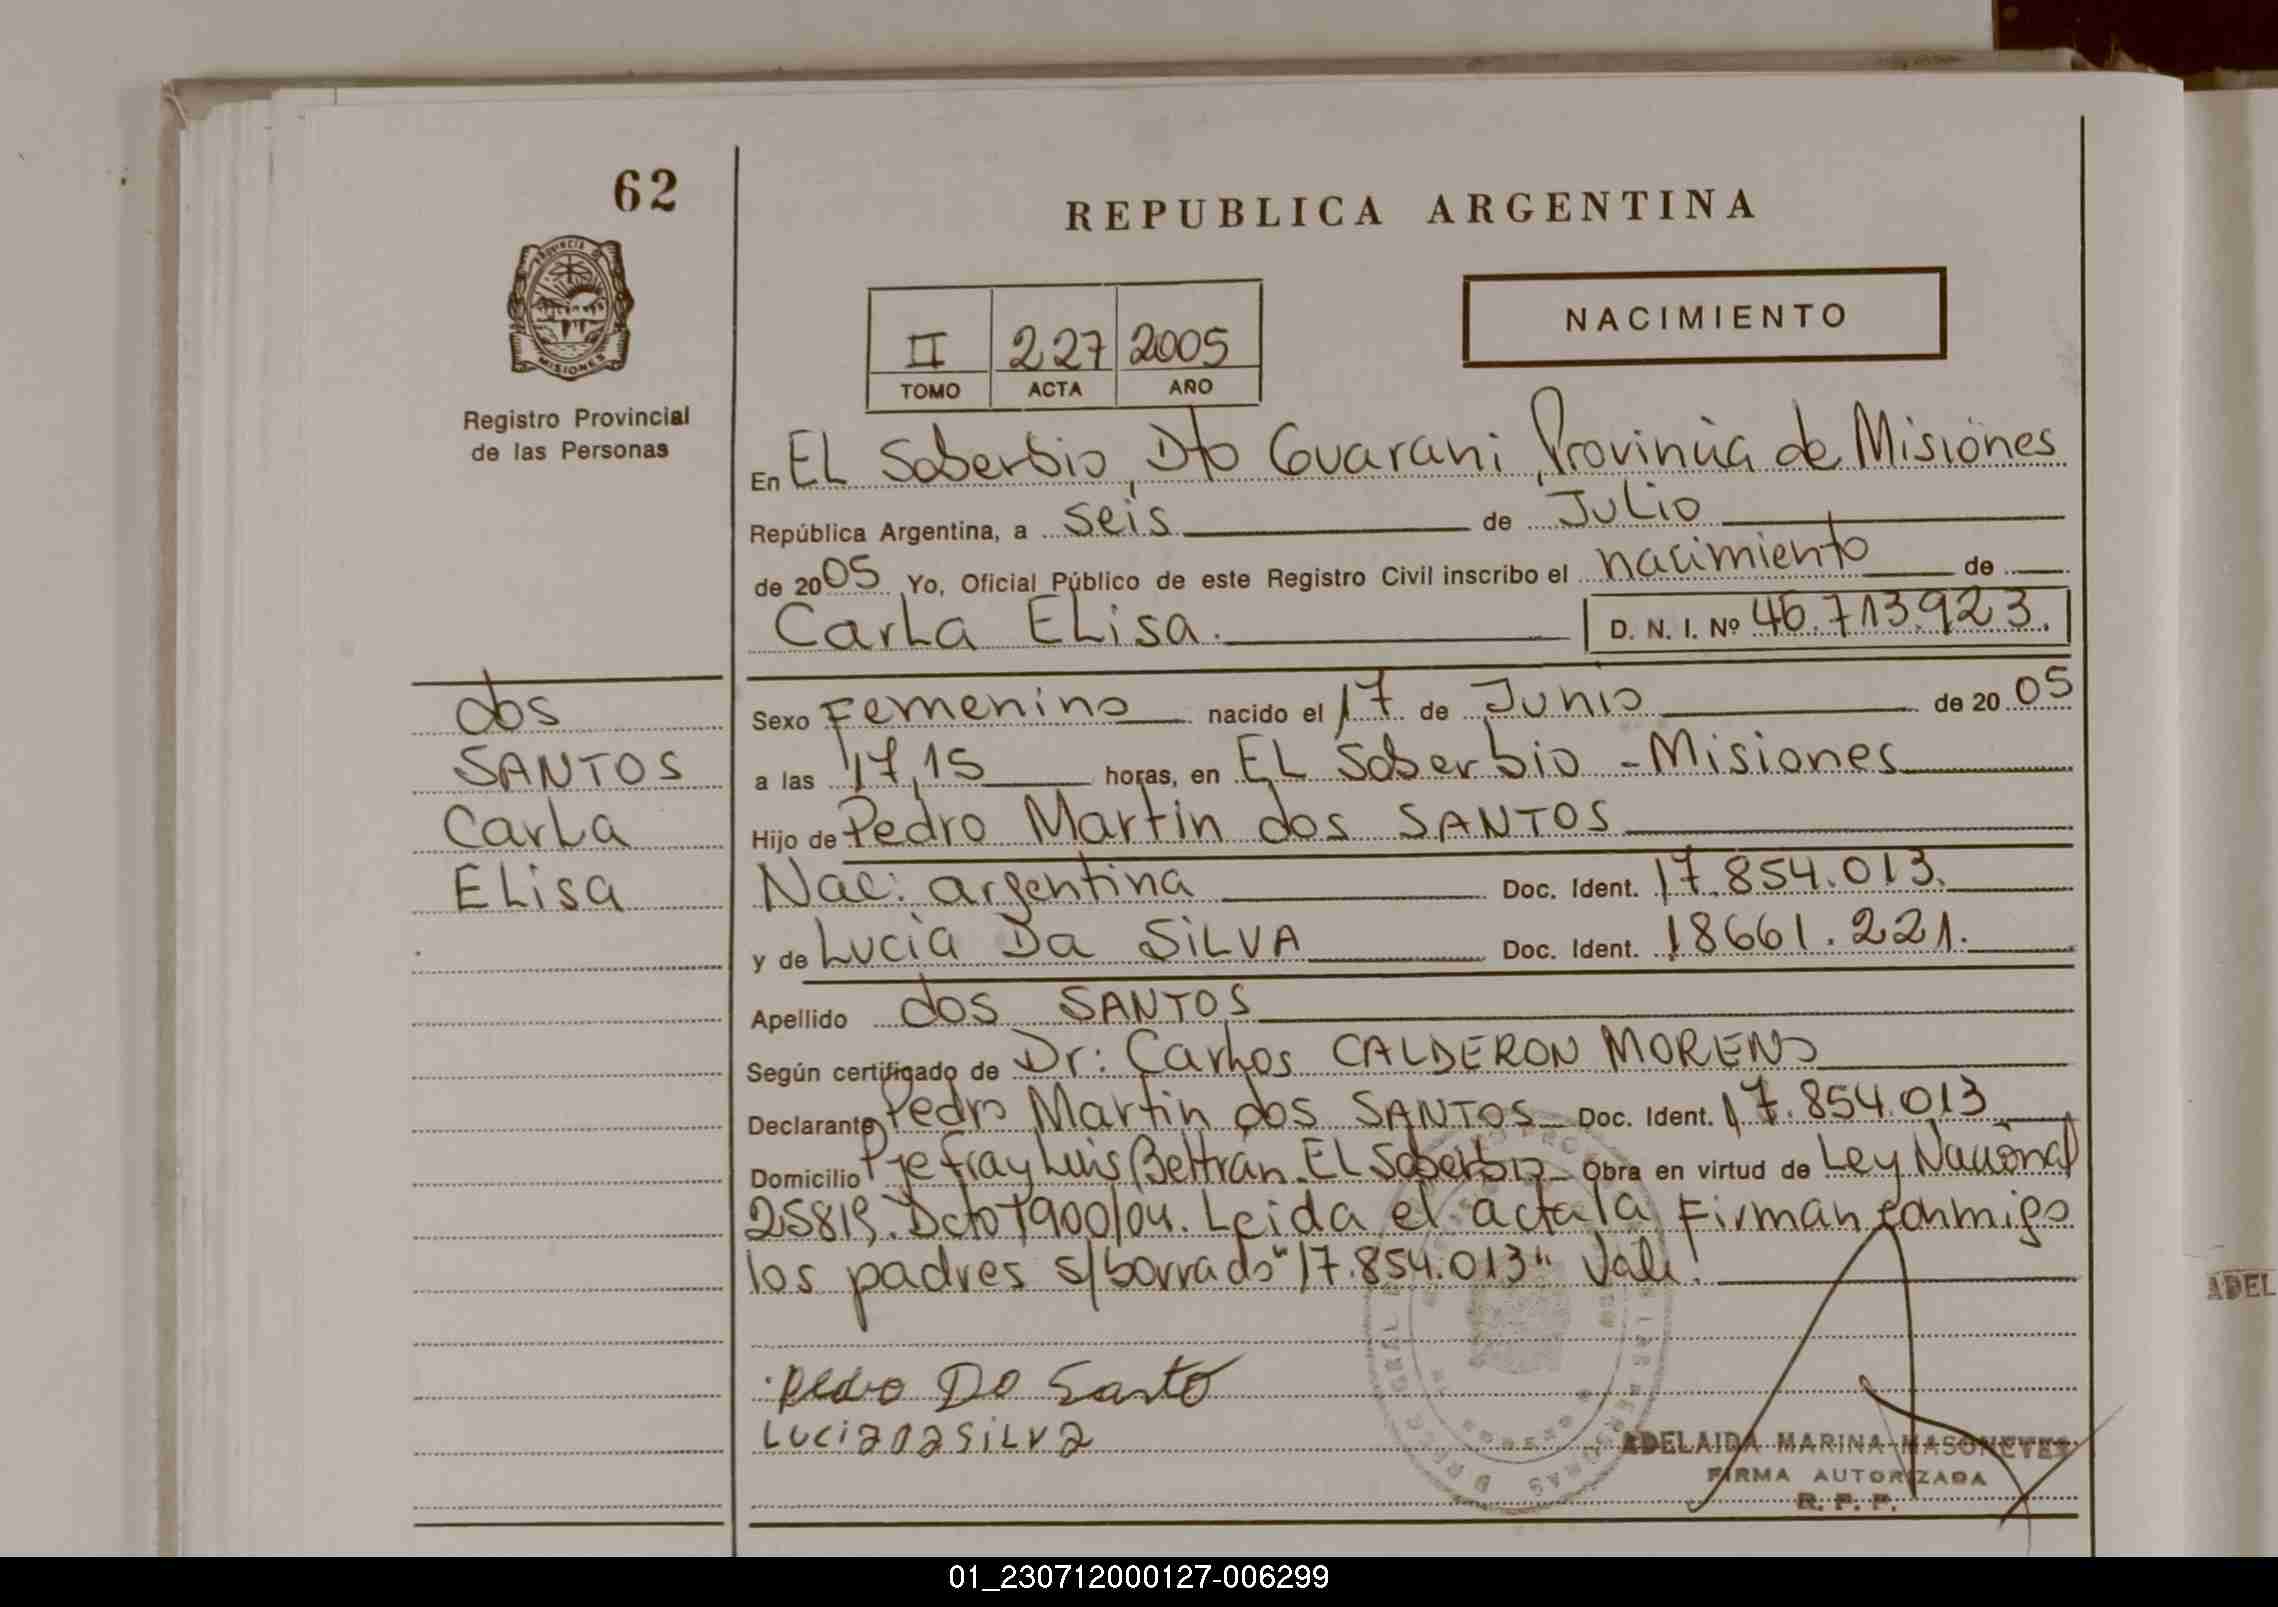 62
REPUBLICA ARGENTINA
PROVINCIA D
MISIONES
NACIMIENTO
II 227 2005
TOMO ACTA AÑO
Registro Provincial
de las Personas
En EL Soberbio, Dto Guarani, Provincia de Misiones
República Argentina, a seis de Julio
de 2005 Yo, Oficial Público de este Registro Civil inscribo el nacimiento de
Carla Elisa. D. N. I. Nº 46.713.923.
dos
SANTOS
Carla
Elisa
Sexo Femenino nacido el 17 de Junio de 20 05
a las 17,15 horas, en EL Soberbio - Misiones
Hijo de Pedro Martin dos SANTOS
Nac: argentina Doc. Ident. 17.854.013.
y de Lucia Da SILVA Doc. Ident. 18661.221.
Apellido dos SANTOS
Según certificado de Dr: Carlos CALDERON MORENO
Declarante Pedro Martin dos SANTOS Doc. Ident. 17.854.013
Domicilio Pje Fray Luis Beltrán. EL Soberbio Obra en virtud de Ley Nacional
25819. Dcto 1900/04. Leida el acta la Firman conmigo
los padres s/borrado "17.854.013" Vale.
Pedro Do Santo
LUCIa DaSiLVa
ADELAIDA MARINA
FIRMA AUTORIZADA
R. P. P.
ADEL
01_230712000127-006299